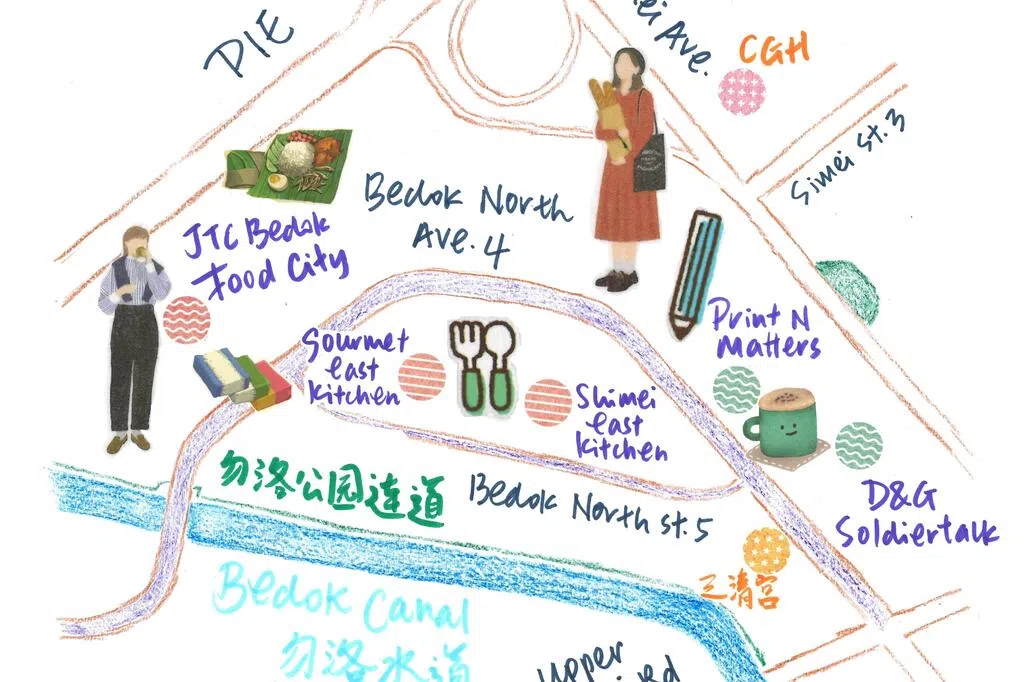 PIE
Ave.
CGH
Simei St. 3
Bedok North
Ave. 4
JTC Bedok
Food City
Print N
Matters
Gourmet
East
Kitchen
Shimei
East
Kitchen
勿洛公园连道
Bedok North St. 5
D&G
Soldiertalk
三清宫
Bedok Canal
勿洛水道
Upper
Rd